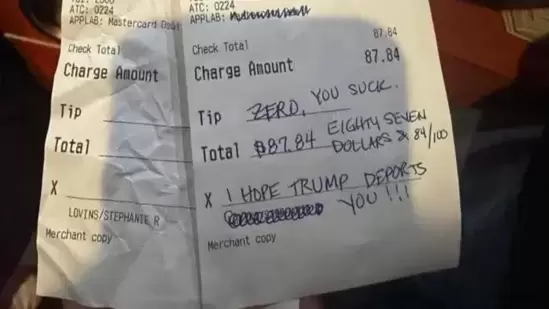 ATC: 0224
APPLAB: Mastercard Debit
Check Total
Charge Amount
Tip
Total
X
LOVINS/STEPHANIE R
Merchant copy
ATC: 0224
APPLAB:
87.84
Check Total
87.84
Charge Amount
Tip ZERO, YOU SUCK.
Total $87.84 EIGHTY SEVEN
DOLLARS & 84/100
X I HOPE TRUMP DEPORTS
YOU!!!
Merchant copy